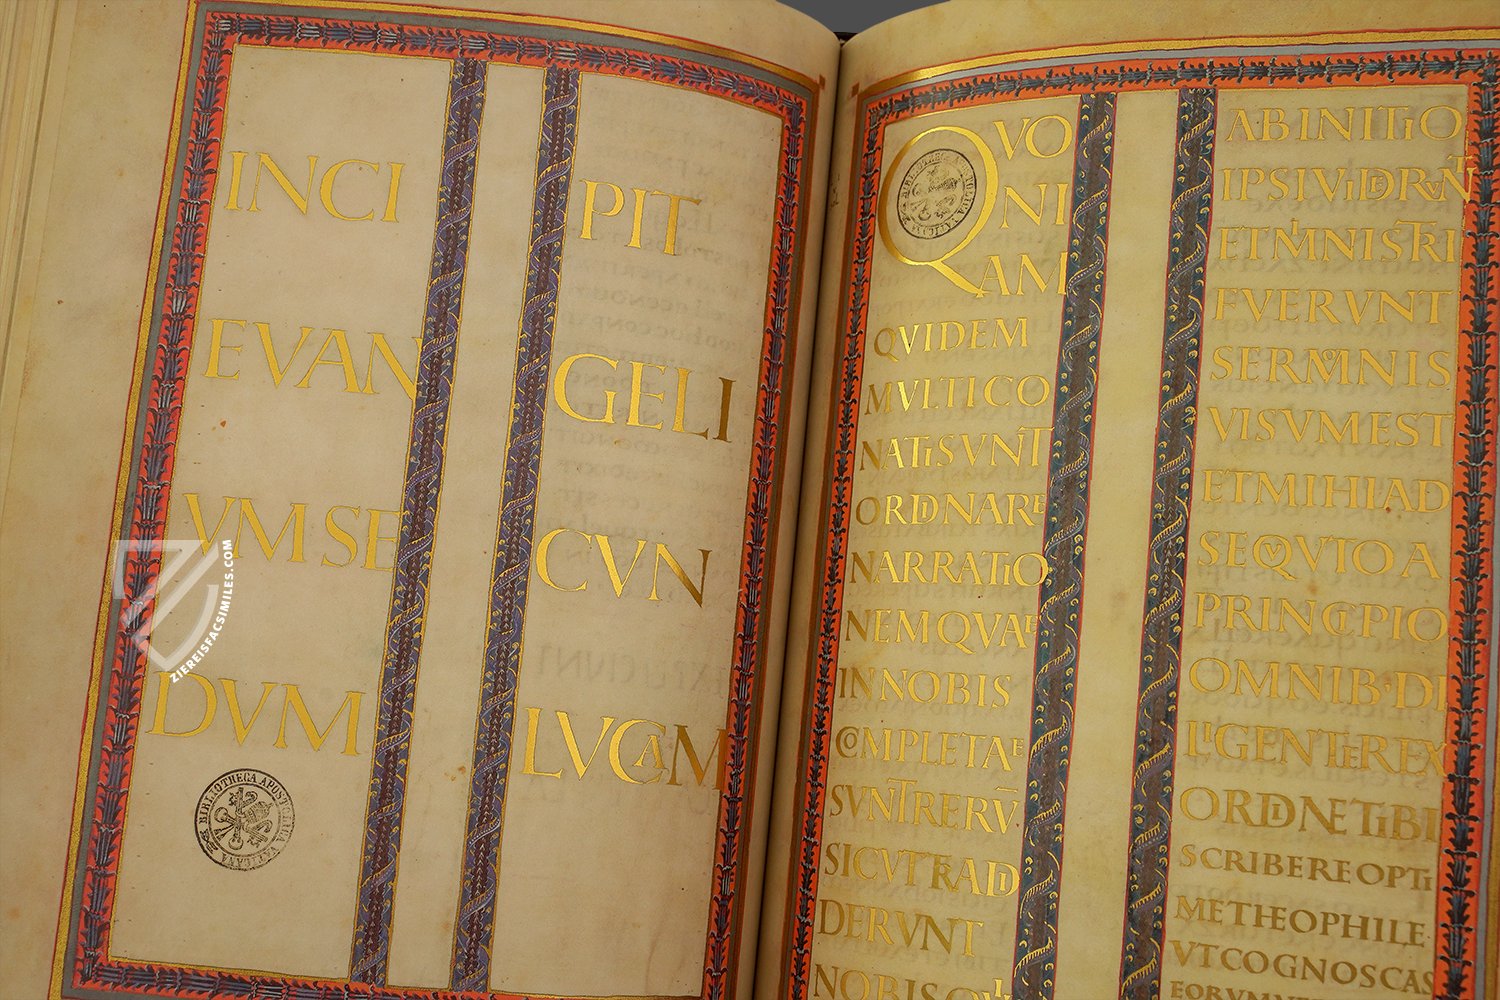 INCI
EVAN
VM SE
DVM
BIBLIOTHECA APOSTOLICA VATICANA
PIT
GELI
CVN
LVCAM
ZIEREISFACSIMILES.COM
QVO
NI
AM
QVIDEM
MVLTICO
NATISVNT
ORDINARE
NARRATIO
NEMQVAE
INNOBIS
COMPLETAE
SVNTRERV̄
SICVTTRADI
DERVNT
ABINITIO
IPSIVIDERVNT
ETMINISTRI
FVERVNT
SERMONIS
VISVMEST
ETMIHIAD
SEQVTOA
PRINCIPIO
OMNIB·DI
LIGENTEREX
ORDINETIBI
SCRIBEREOPTI
METHEOPHILE·
VTCOGNOSCAS